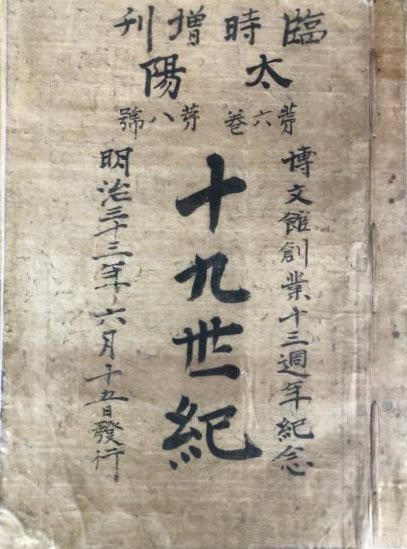 臨時增刊
太陽
第六巻 第八號
博文館創業十三週年紀念
十九世紀
明治三十三年六月十五日發行